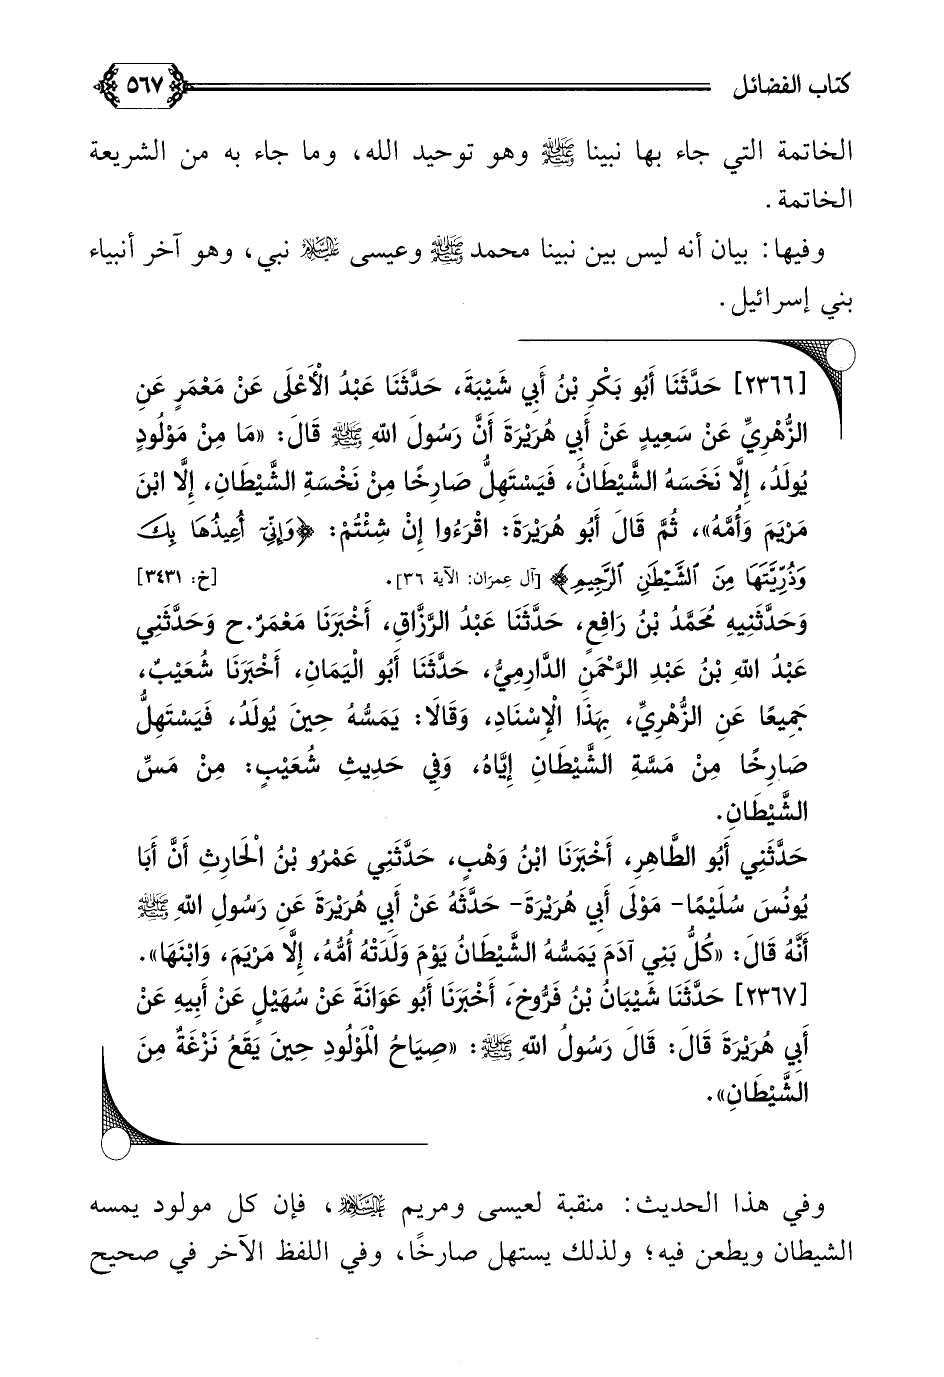 كتاب الفضائل ٥٦٧
الخاتمة التي جاء بها نبينا ﷺ وهو توحيد الله، وما جاء به من الشريعة
الخاتمة.
وفيها: بيان أنه ليس بين نبينا محمد ﷺ وعيسى عليه السلام نبي، وهو آخر أنبياء
بني إسرائيل.
[٢٣٦٦] حَدَّثَنَا أَبُو بَكْرِ بْنُ أَبِي شَيْبَةَ، حَدَّثَنَا عَبْدُ الْأَعْلَى عَنْ مَعْمَرٍ عَنِ
الزُّهْرِيِّ عَنْ سَعِيدٍ عَنْ أَبِي هُرَيْرَةَ أَنَّ رَسُولَ اللهِ ﷺ قَالَ: «مَا مِنْ مَوْلُودٍ
يُولَدُ، إِلَّا نَخَسَهُ الشَّيْطَانُ، فَيَسْتَهِلُّ صَارِخًا مِنْ نَخْسَةِ الشَّيْطَانِ، إِلَّا ابْنَ
مَرْيَمَ وَأُمَّهُ»، ثُمَّ قَالَ أَبُو هُرَيْرَةَ: اقْرَءُوا إِنْ شِئْتُمْ: ﴿وَإِنِّيٓ أُعِيذُهَا بِكَ
وَذُرِّيَّتَهَا مِنَ ٱلشَّيْطَٰنِ ٱلرَّجِيمِ﴾ [آل عِمرَان: الآية ٣٦]. [خ: ٣٤٣١]
وَحَدَّثَنِيهِ مُحَمَّدُ بْنُ رَافِعٍ، حَدَّثَنَا عَبْدُ الرَّزَّاقِ، أَخْبَرَنَا مَعْمَرٌ.ح وَحَدَّثَنِي
عَبْدُ اللهِ بْنُ عَبْدِ الرَّحْمَنِ الدَّارِمِيُّ، حَدَّثَنَا أَبُو الْيَمَانِ، أَخْبَرَنَا شُعَيْبٌ،
جَمِيعًا عَنِ الزُّهْرِيِّ، بِهَذَا الْإِسْنَادِ، وَقَالَا: يَمَسُّهُ حِينَ يُولَدُ، فَيَسْتَهِلُّ
صَارِخًا مِنْ مَسَّةِ الشَّيْطَانِ إِيَّاهُ، وَفِي حَدِيثِ شُعَيْبٍ: مِنْ مَسِّ
الشَّيْطَانِ.
حَدَّثَنِي أَبُو الطَّاهِرِ، أَخْبَرَنَا ابْنُ وَهْبٍ، حَدَّثَنِي عَمْرُو بْنُ الْحَارِثِ أَنَّ أَبَا
يُونُسَ سُلَيْمًا- مَوْلَى أَبِي هُرَيْرَةَ- حَدَّثَهُ عَنْ أَبِي هُرَيْرَةَ عَنِ رَسُولِ اللهِ ﷺ
أَنَّهُ قَالَ: «كُلُّ بَنِي آدَمَ يَمَسُّهُ الشَّيْطَانُ يَوْمَ وَلَدَتْهُ أُمُّهُ، إِلَّا مَرْيَمَ، وَابْنَهَا».
[٢٣٦٧] حَدَّثَنَا شَيْبَانُ بْنُ فَرُّوخَ، أَخْبَرَنَا أَبُو عَوَانَةَ عَنْ سُهَيْلٍ عَنْ أَبِيهِ عَنْ
أَبِي هُرَيْرَةَ قَالَ: قَالَ رَسُولُ اللهِ ﷺ: «صِيَاحُ الْمَوْلُودِ حِينَ يَقَعُ نَزْغَةٌ مِنَ
الشَّيْطَانِ».
وفي هذا الحديث: منقبة لعيسى ومريم عليهما السلام، فإن كل مولود يمسه
الشيطان ويطعن فيه؛ ولذلك يستهل صارخًا، وفي اللفظ الآخر في صحيح